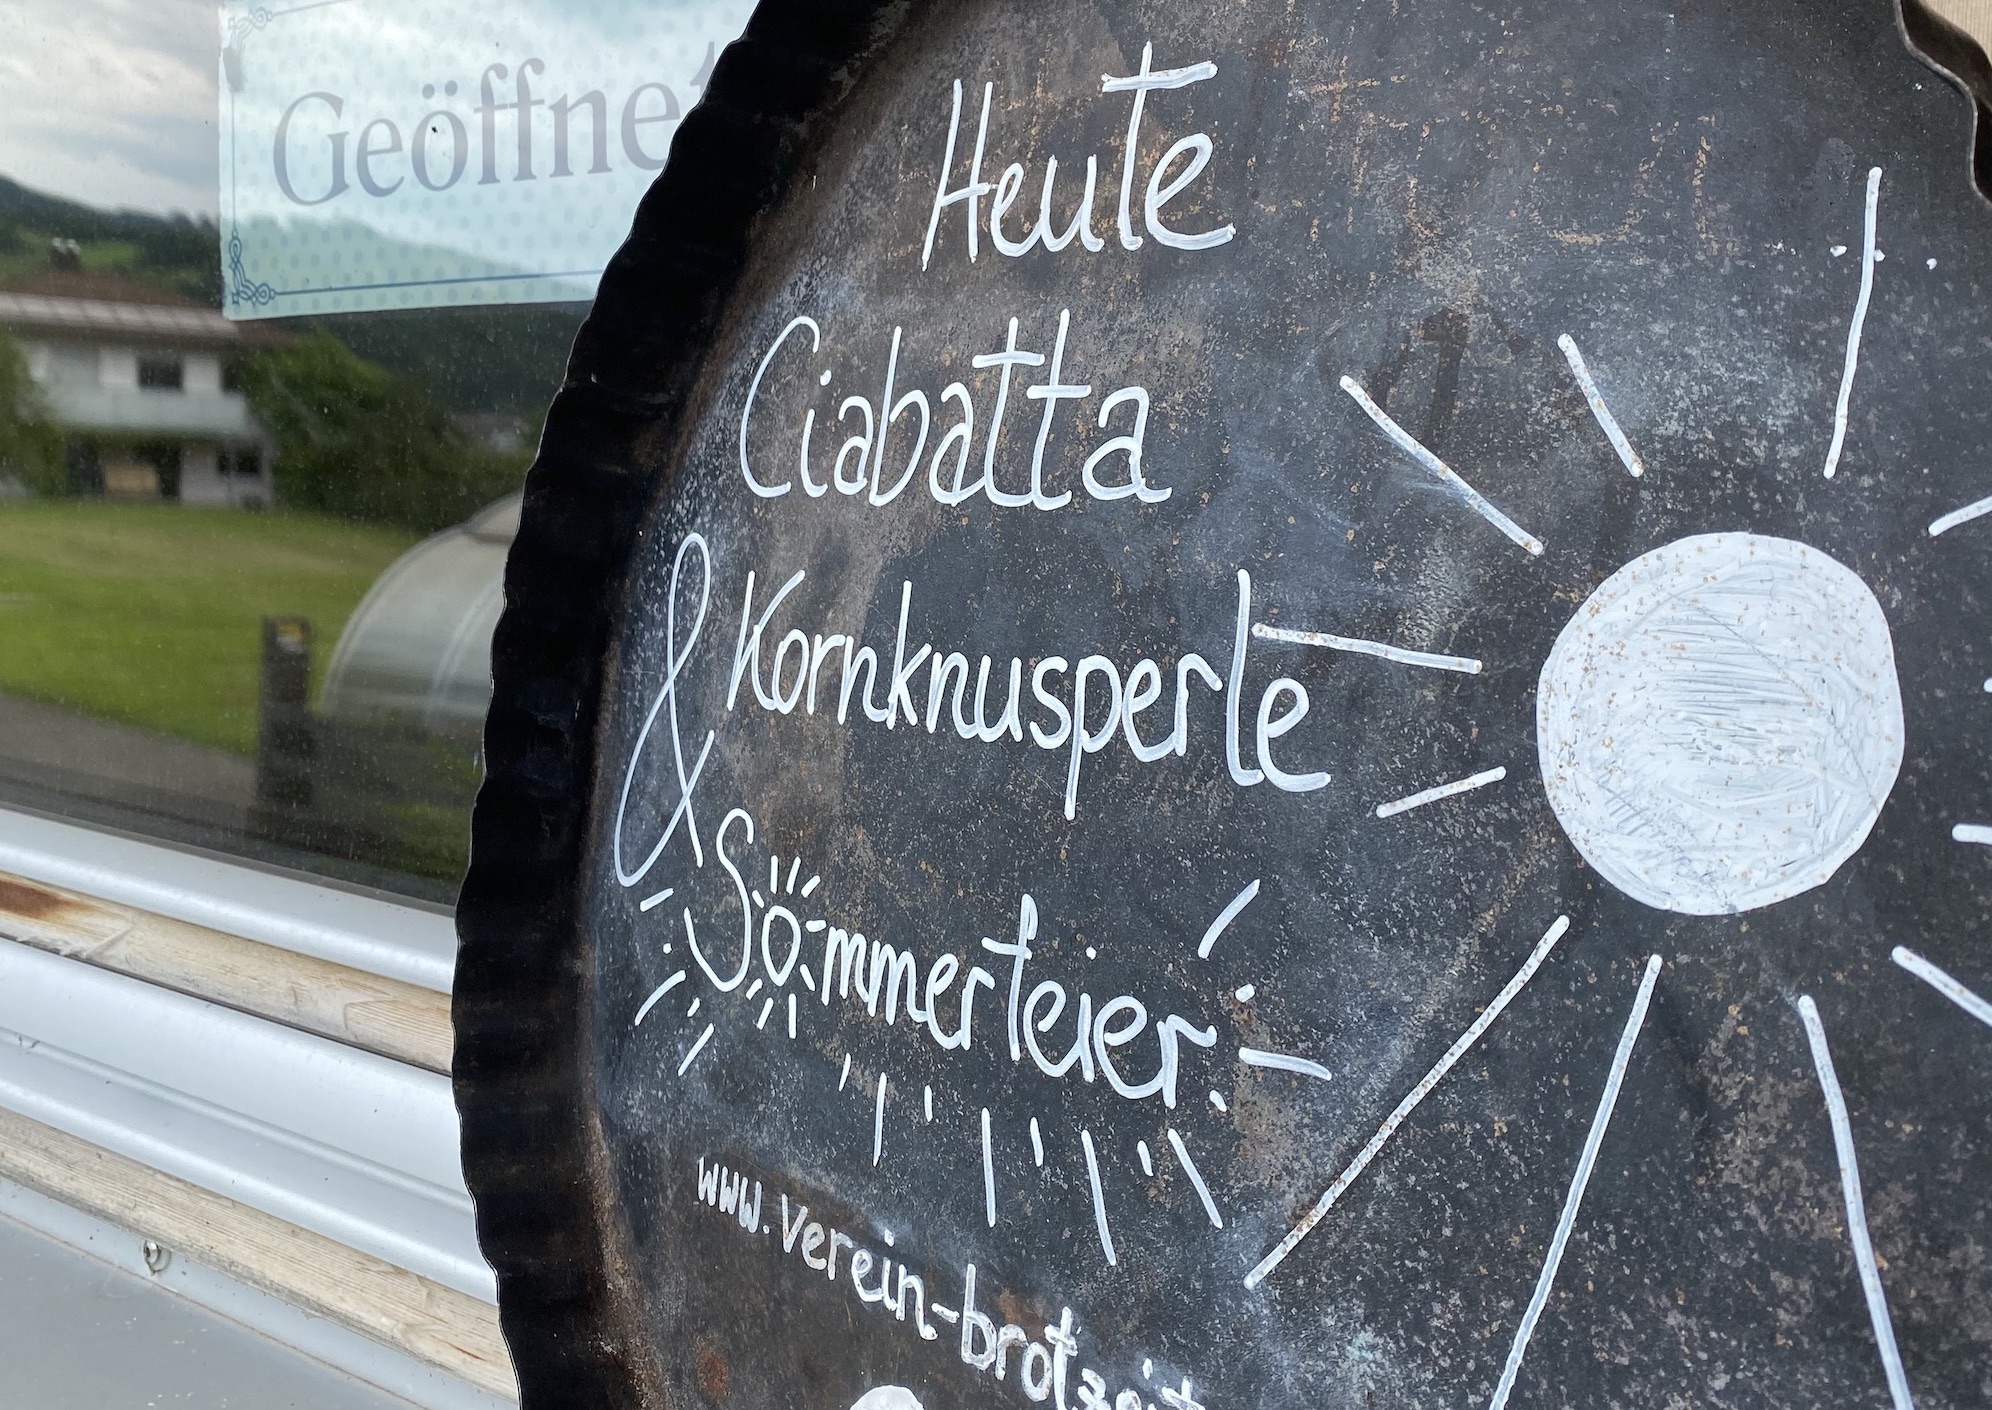 Geöffnet
Heute
Ciabatta
& Kornknusperle
Sommerfeier.
www.verein-brotzeit